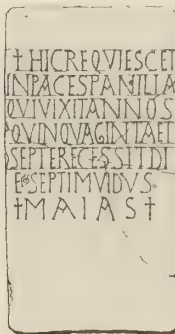 † HICREQVIESCET
INPACESPANILIA
QVIVIXITANNOS
QVINQVAGINTAET
SEPTERECESSITDI
E SEPTIMVIDVS
† MAIAS †